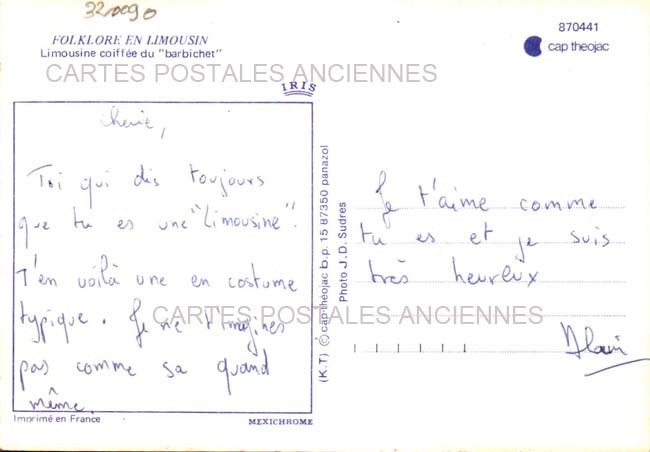 320090
870441
FOLKLORE EN LIMOUSIN
Limousine coiffée du "barbichet"
cap theojac
CARTES POSTALES ANCIENNES
IRIS
cherie,
Toi qui dis toujours
que tu es une "Limousine".
T'en voilà une en costume
typique. Je ne t'imagines
pas comme sa quand
même.
Imprimé en France
MEXICHROME
(K.T) © cap-théojac b.p. 15 87350 panazol
Photo J.D. Sudres
Je t'aime comme
tu es et je suis
très heureux
CARTES POSTALES ANCIENNES
Alain